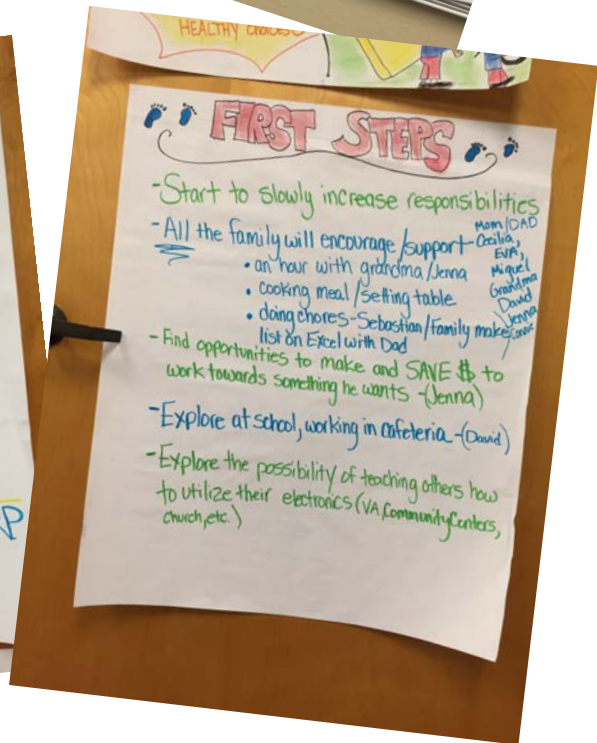 HEALTHY choices
FIRST STEPS
-Start to slowly increase responsibilities
-All the family will encourage/support-
Mom/DAD
Cecilia,
EVA,
Miguel
Grandma
David
Jenna
Connie
• an hour with grandma/Jenna
• cooking meal/setting table
• doing chores-Sebastian/family make
list on Excel with Dad
-Find opportunities to make and SAVE $ to
work towards something he wants -(Jenna)
-Explore at school, working in cafeteria-(David)
-Explore the possibility of teaching others how
to utilize their electronics (VA, Community Centers,
church, etc.)
P